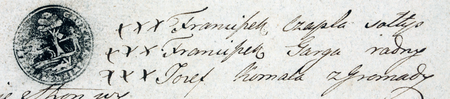 xxx Franciszek Czapla sołtys
xxx Franciszek Garga radny
xxx Jozef Kornata z Gromady